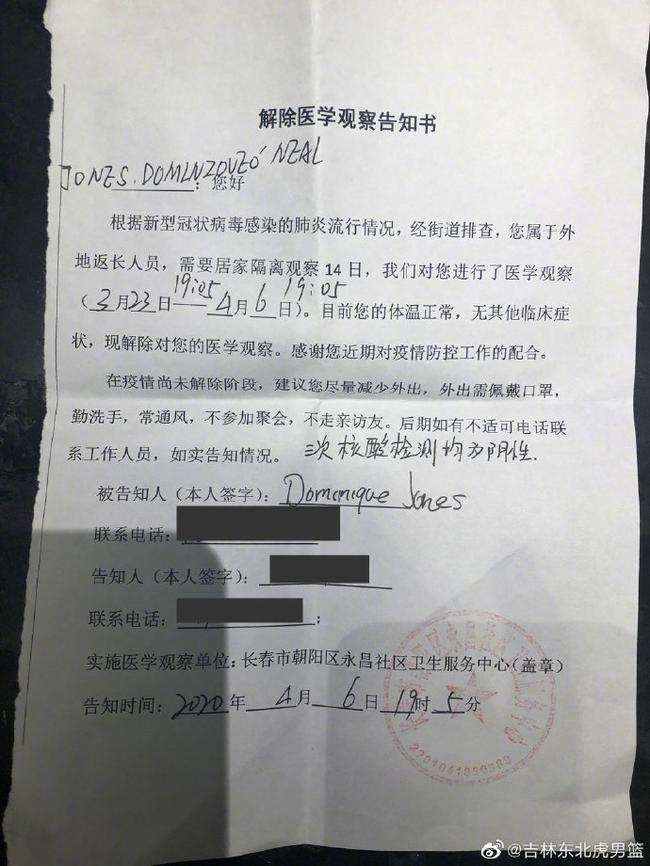 解除医学观察告知书
JONES.DOMINZOVEO' NEAL
：您好
根据新型冠状病毒感染的肺炎流行情况，经街道排查，您属于外
地返长人员，需要居家隔离观察 14 日，我们对您进行了医学观察
19:05 19:05
（3月23日—4月6日）。目前您的体温正常，无其他临床症
状，现解除对您的医学观察。感谢您近期对疫情防控工作的配合。
在疫情尚未解除阶段，建议您尽量减少外出，外出需佩戴口罩，
勤洗手，常通风，不参加聚会，不走亲访友。后期如有不适可电话联
系工作人员，如实告知情况。三次核酸检测均为阴性.
被告知人（本人签字）：Dominique Jones
联系电话：
告知人（本人签字）：
联系电话：；
实施医学观察单位：长春市朝阳区永昌社区卫生服务中心（盖章）
告知时间：2020年4月6日19时5分
@吉林东北虎男篮